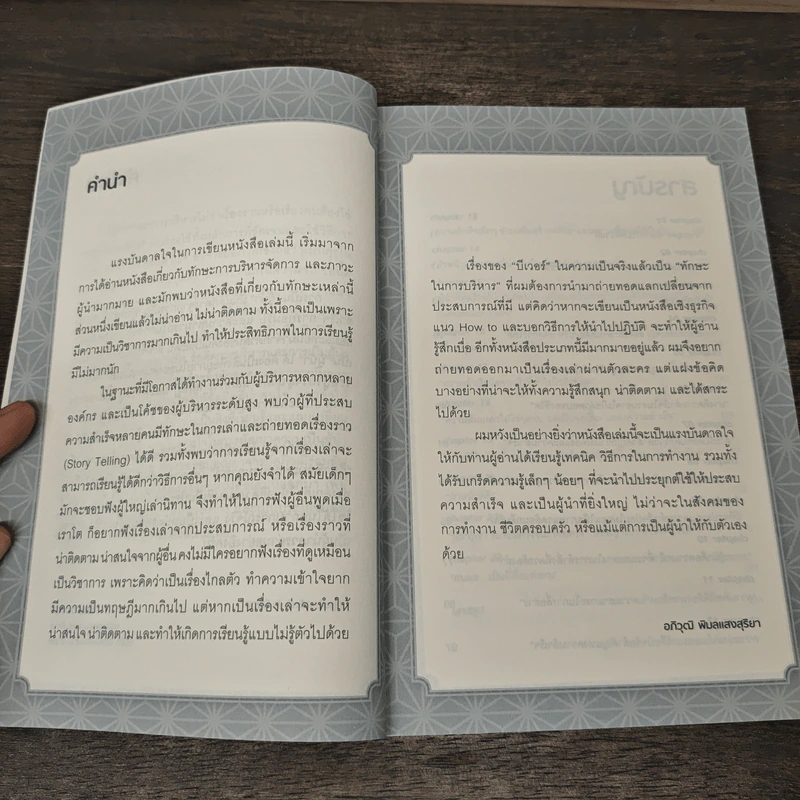 คำนำ
แรงบันดาลใจในการเขียนหนังสือเล่มนี้ เริ่มมาจาก
การได้อ่านหนังสือเกี่ยวกับทักษะการบริหารจัดการ และภาวะ
ผู้นำมากมาย และมักพบว่าหนังสือที่เกี่ยวกับทักษะเหล่านี้
ส่วนหนึ่งเขียนแล้วไม่น่าอ่าน ไม่น่าติดตาม ทั้งนี้อาจเป็นเพราะ
มีความเป็นวิชาการมากเกินไป ทำให้ประสิทธิภาพในการเรียนรู้
มีไม่มากนัก
ในฐานะที่มีโอกาสได้ทำงานร่วมกับผู้บริหารหลากหลาย
องค์กร และเป็นโค้ชของผู้บริหารระดับสูง พบว่าผู้ที่ประสบ
ความสำเร็จหลายคนมีทักษะในการเล่าและถ่ายทอดเรื่องราว
(Story Telling) ได้ดี รวมทั้งพบว่าการเรียนรู้จากเรื่องเล่าจะ
สามารถเรียนรู้ได้ดีกว่าวิธีการอื่นๆ หากคุณยังจำได้ สมัยเด็กๆ
มักจะชอบฟังผู้ใหญ่เล่านิทาน จึงทำให้ในการฟังผู้อื่นพูดเมื่อ
เราโต ก็อยากฟังเรื่องเล่าจากประสบการณ์ หรือเรื่องราวที่
น่าติดตาม น่าสนใจจากผู้อื่น คงไม่มีใครอยากฟังเรื่องที่ดูเหมือน
เป็นวิชาการ เพราะคิดว่าเป็นเรื่องไกลตัว ทำความเข้าใจยาก
มีความเป็นทฤษฎีมากเกินไป แต่หากเป็นเรื่องเล่าจะทำให้
น่าสนใจ น่าติดตาม และทำให้เกิดการเรียนรู้แบบไม่รู้ตัวไปด้วย
เรื่องของ "บีเวอร์" ในความเป็นจริงแล้วเป็น "ทักษะ
ในการบริหาร" ที่ผมต้องการนำมาถ่ายทอดแลกเปลี่ยนจาก
ประสบการณ์ที่มี แต่คิดว่าหากจะเขียนเป็นหนังสือเชิงธุรกิจ
แนว How to และบอกวิธีการให้นำไปปฏิบัติ จะทำให้ผู้อ่าน
รู้สึกเบื่อ อีกทั้งหนังสือประเภทนี้มีมากมายอยู่แล้ว ผมจึงอยาก
ถ่ายทอดออกมาเป็นเรื่องเล่าผ่านตัวละคร แต่แฝงข้อคิด
บางอย่างที่น่าจะให้ทั้งความรู้สึกสนุก น่าติดตาม และได้สาระ
ไปด้วย
ผมหวังเป็นอย่างยิ่งว่าหนังสือเล่มนี้จะเป็นแรงบันดาลใจ
ให้กับท่านผู้อ่านได้เรียนรู้เทคนิค วิธีการในการทำงาน รวมทั้ง
ได้รับเกร็ดความรู้เล็กๆ น้อยๆ ที่จะนำไปประยุกต์ใช้ให้ประสบ
ความสำเร็จ และเป็นผู้นำที่ยิ่งใหญ่ ไม่ว่าจะในสังคมของ
การทำงาน ชีวิตครอบครัว หรือแม้แต่การเป็นผู้นำให้กับตัวเอง
ด้วย
อภิวุฒิ พิมลแสงสุริยา